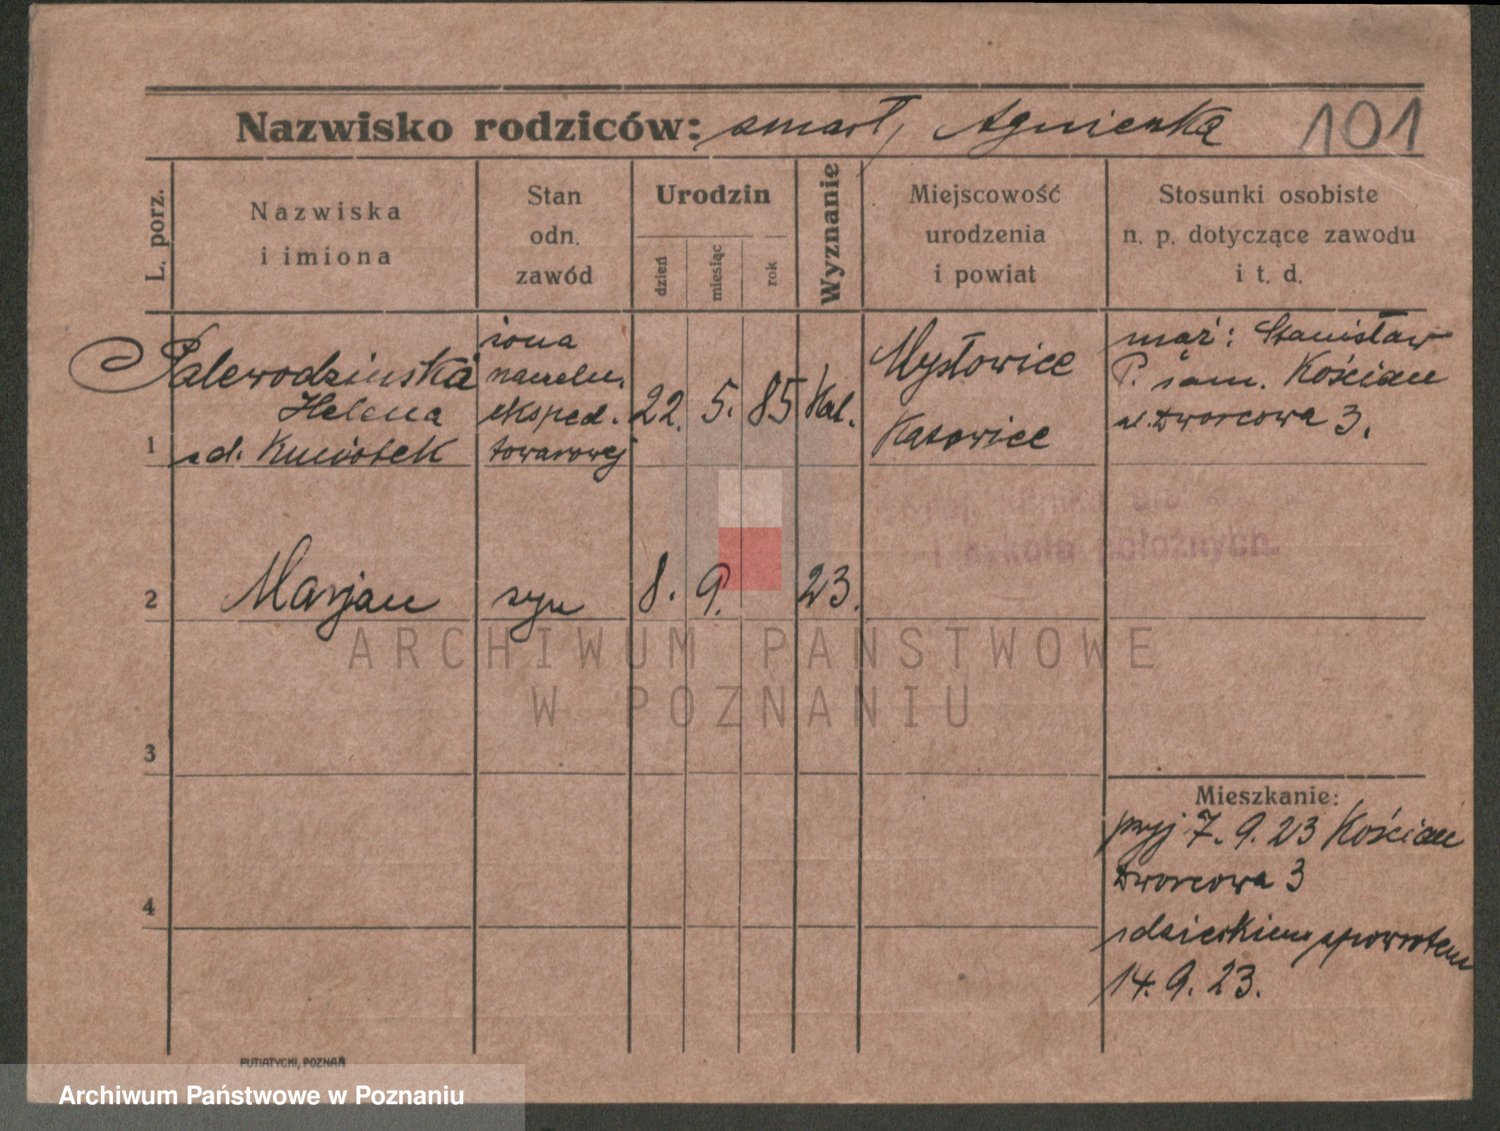 Nazwisko rodziców: smarł, Agnieszka 101
L. porz.
Nazwiska
i imiona
Stan
odn.
zawód
Urodzin
dzień
miesiąc
rok
Wyznanie
Miejscowość
urodzenia
i powiat
Stosunki osobiste
n. p. dotyczące zawodu
i t. d.
1
Palewodzińska
Helena
żona
eksped.
towarowej
22. 5. 85 Kat.
Mysłowice
Katowice
mąż: Stanisław
P. zam. Kościan
ul. Dworcowa 3.
i szkoła położnych.
2 Marjan syn 8. 9. 23.
ARCHIWUM PAŃSTWOWE
W POZNANIU
3
4
Mieszkanie:
przyj 7. 9. 23 Kościan
Dworcowa 3
z dzieckiem zpowrotem
14. 9. 23.
PUTIATYCKI, POZNAŃ
Archiwum Państwowe w Poznaniu